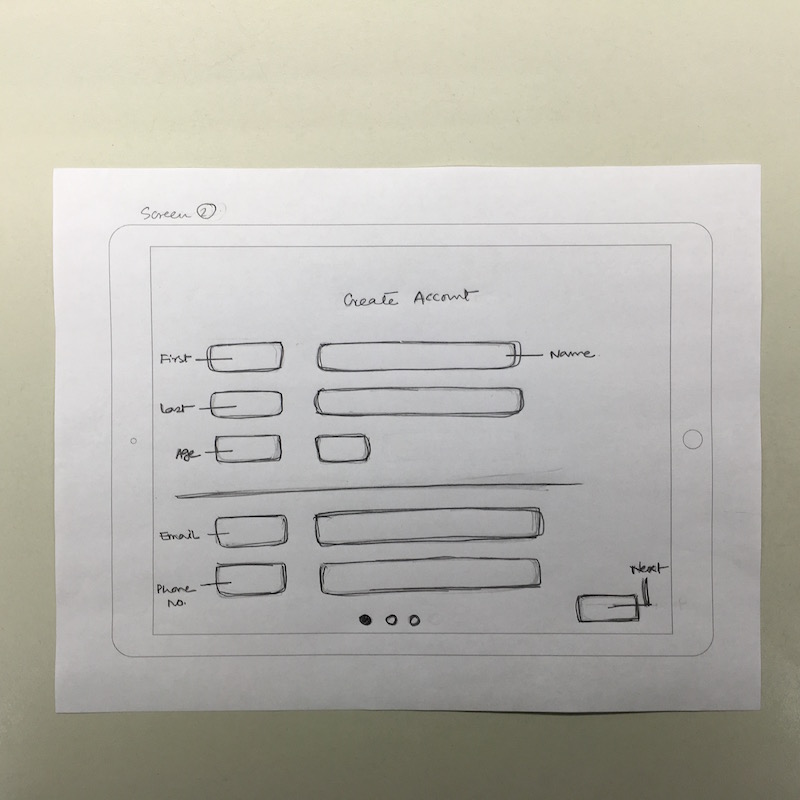 Screen 2
Create Account
First
Name
Last
Age
Email
Phone
No.
Next